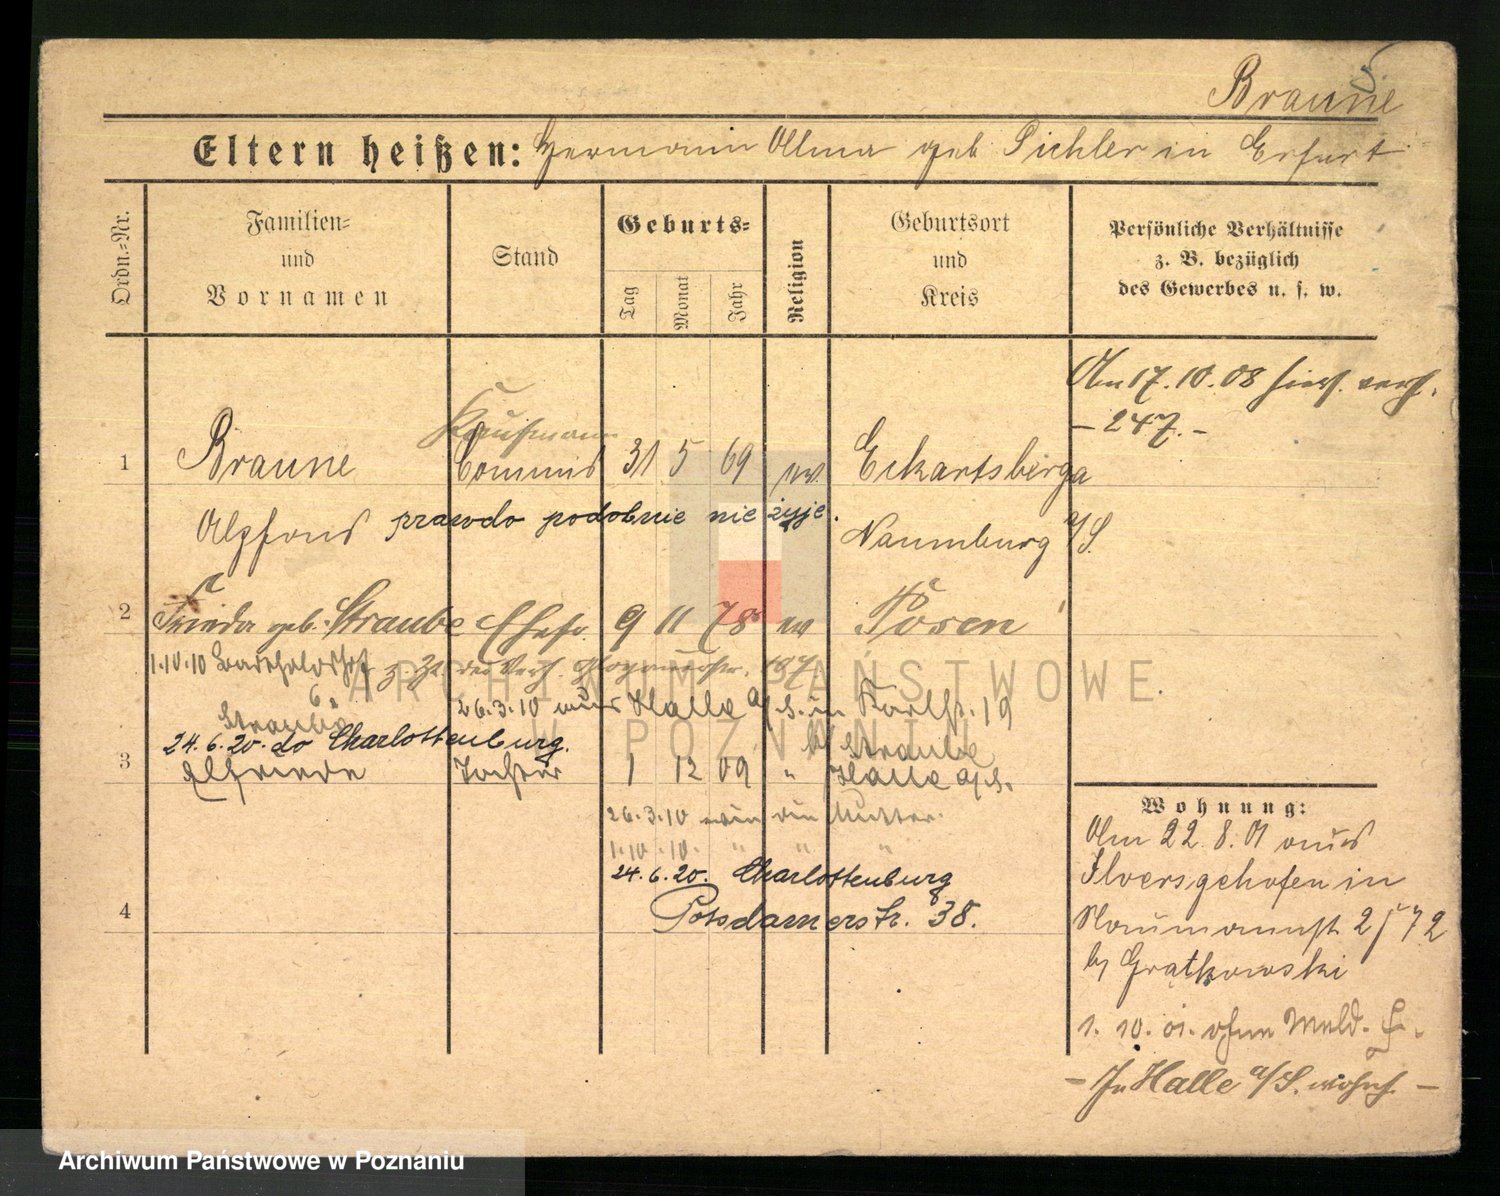 Braune
Eltern heißen: Hermann Alma geb Pichler in Erfurt
Ordn.=Nr.
Familien=
und
Vornamen
Stand
Geburts=
Tag
Monat
Jahr
Religion
Geburtsort
und
Kreis
Persönliche Verhältnisse
z. B. bezüglich
des Gewerbes u. s. w.
Am 17.10.08 hier verh.
- 247. -
Kaufmann
1 Braune Commis 31 5 69 ev. Eckartsberga
Alfons prawdo podobnie nie żyje. Naumburg a/S.
2 Frieda geb. Straube Ehefr. 9 11 78 ev Posen
1.10.10
26.3.10 aus Halle a/S. in Karlstr. 19
Straube b/ Straube
24.6.20. do Charlottenburg.
3 Elfriede Tochter 1 12 09 " Halle a/S.
26.3.10 wie die Mutter.
1.10.10. " " "
24.6.20. Charlottenburg
4 Potsdamerstr. 38.
Wohnung:
Am 22.8.01 aus
Ilversgehofen in
Naumannst 2 72
b/ Gratkowski
1.10.01. ohne Meld.
- In Halle a/S. wohnh. -
ARCHIWUM PAŃSTWOWE
W POZNANIU
Archiwum Państwowe w Poznaniu